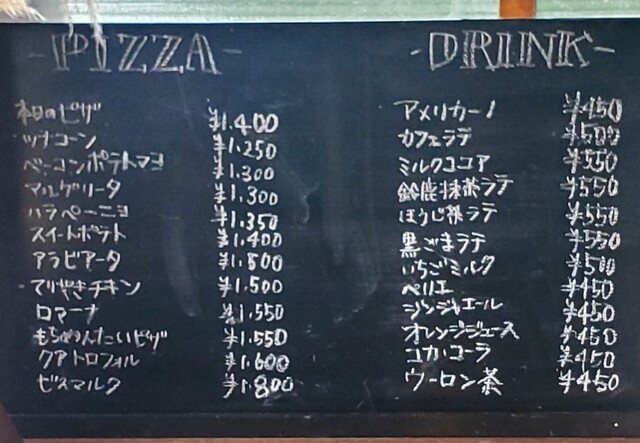 -PIZZA-
本日のピザ ¥1.400
ツナコーン ¥1.250
ベーコンポテトマヨ ¥1.300
マルゲリータ ¥1.300
ハラペーニョ ¥1.350
スイートポテト ¥1.400
アラビアータ ¥1.500
てりやきチキン ¥1.500
ロマーナ ¥1.550
もちめんたいピザ ¥1.550
クアトロフォル ¥1.600
ビスマルク ¥1.800
-DRINK-
アメリカーノ ¥450
カフェラテ ¥500
ミルクココア ¥550
鈴鹿抹茶ラテ ¥550
ほうじ茶ラテ ¥550
黒ごまラテ ¥550
いちごミルク ¥500
ペリエ ¥450
ジンジャエール ¥450
オレンジジュース ¥450
コカ・コーラ ¥450
ウーロン茶 ¥450